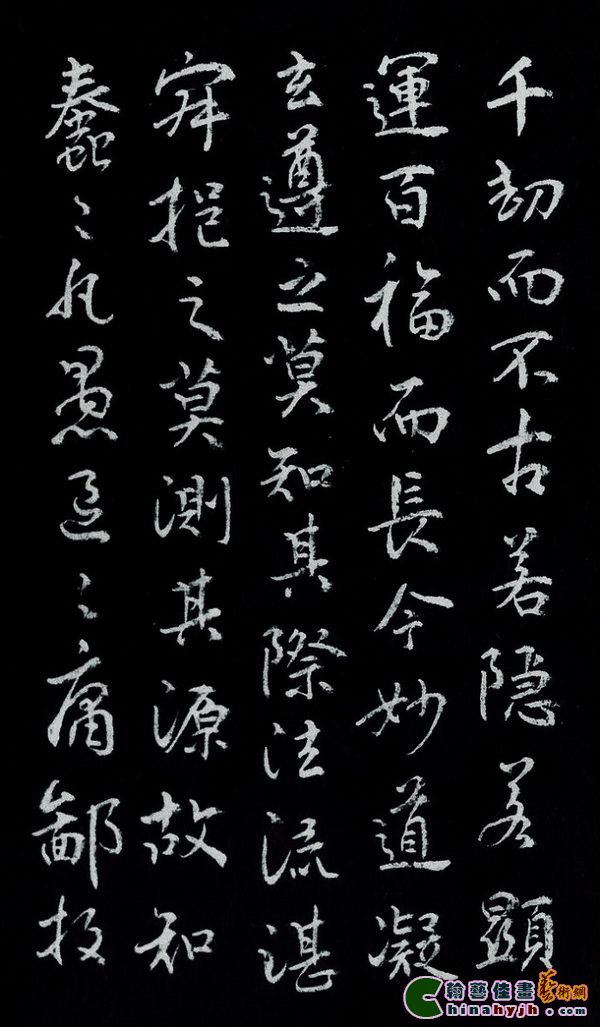 千劫而不古若隱若顯
運百福而長今妙道凝
玄遵之莫知其際法流湛
寂挹之莫測其源故知
蠢〻凡愚區〻庸鄙投
翰藝佳畫藝術網
Chinahyjh.com